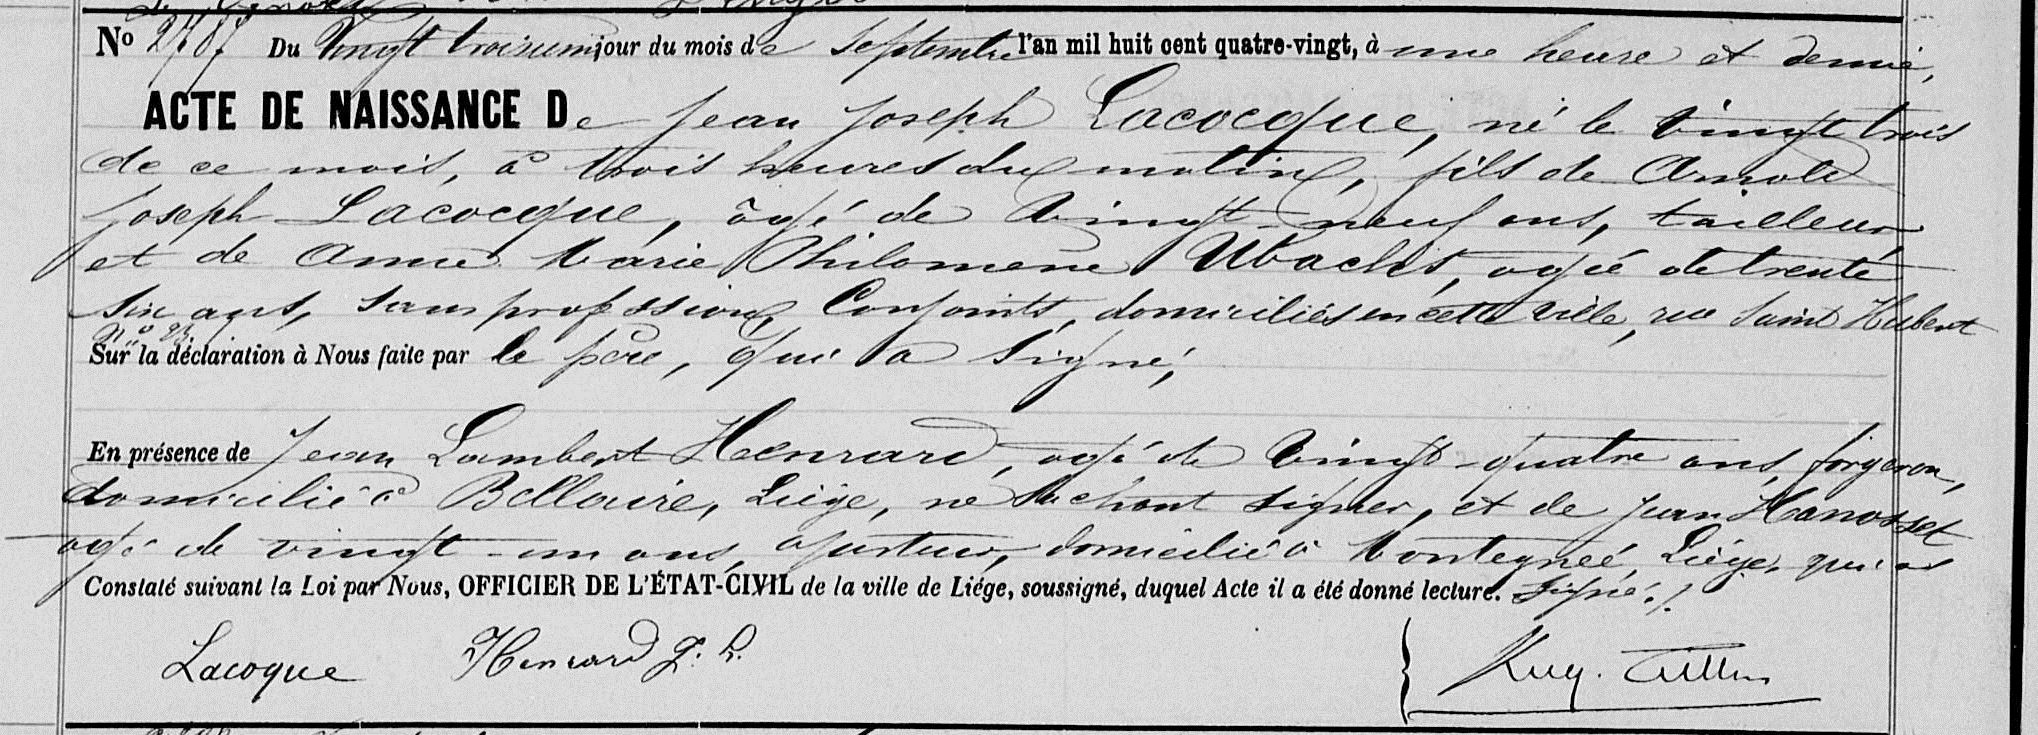 No 2787 Du Vingt troisième jour du mois de Septembre l'an mil huit cent quatre-vingt, à une heure et demie,
ACTE DE NAISSANCE De Jean Joseph Lacocque, né le vingt trois
de ce mois, à trois heures du matin, fils de Arnold
Joseph Lacocque, âgé de vingt-neuf ans, tailleur
et de Anne Marie Philomène Ubachs, agée de trente
six ans, sans profession, Conjoints, domiciliés en cette ville, rue Saint Hubert
No
Sur la déclaration à Nous faite par le père, qui a signé,
En présence de Jean Lambert Henrard, agé de vingt-quatre ans, forgeron,
domicilié à Bellaire, Liége, ne sachant signer, et de Jean Hanosset
agé de vingt-un ans, ajusteur, domicilié à Montegnée, Liége, qui a
Constaté suivant la Loi par Nous, OFFICIER DE L'ÉTAT-CIVIL de la ville de Liége, soussigné, duquel Acte il a été donné lecture. signé./.
Lacoque Henrard J. L.